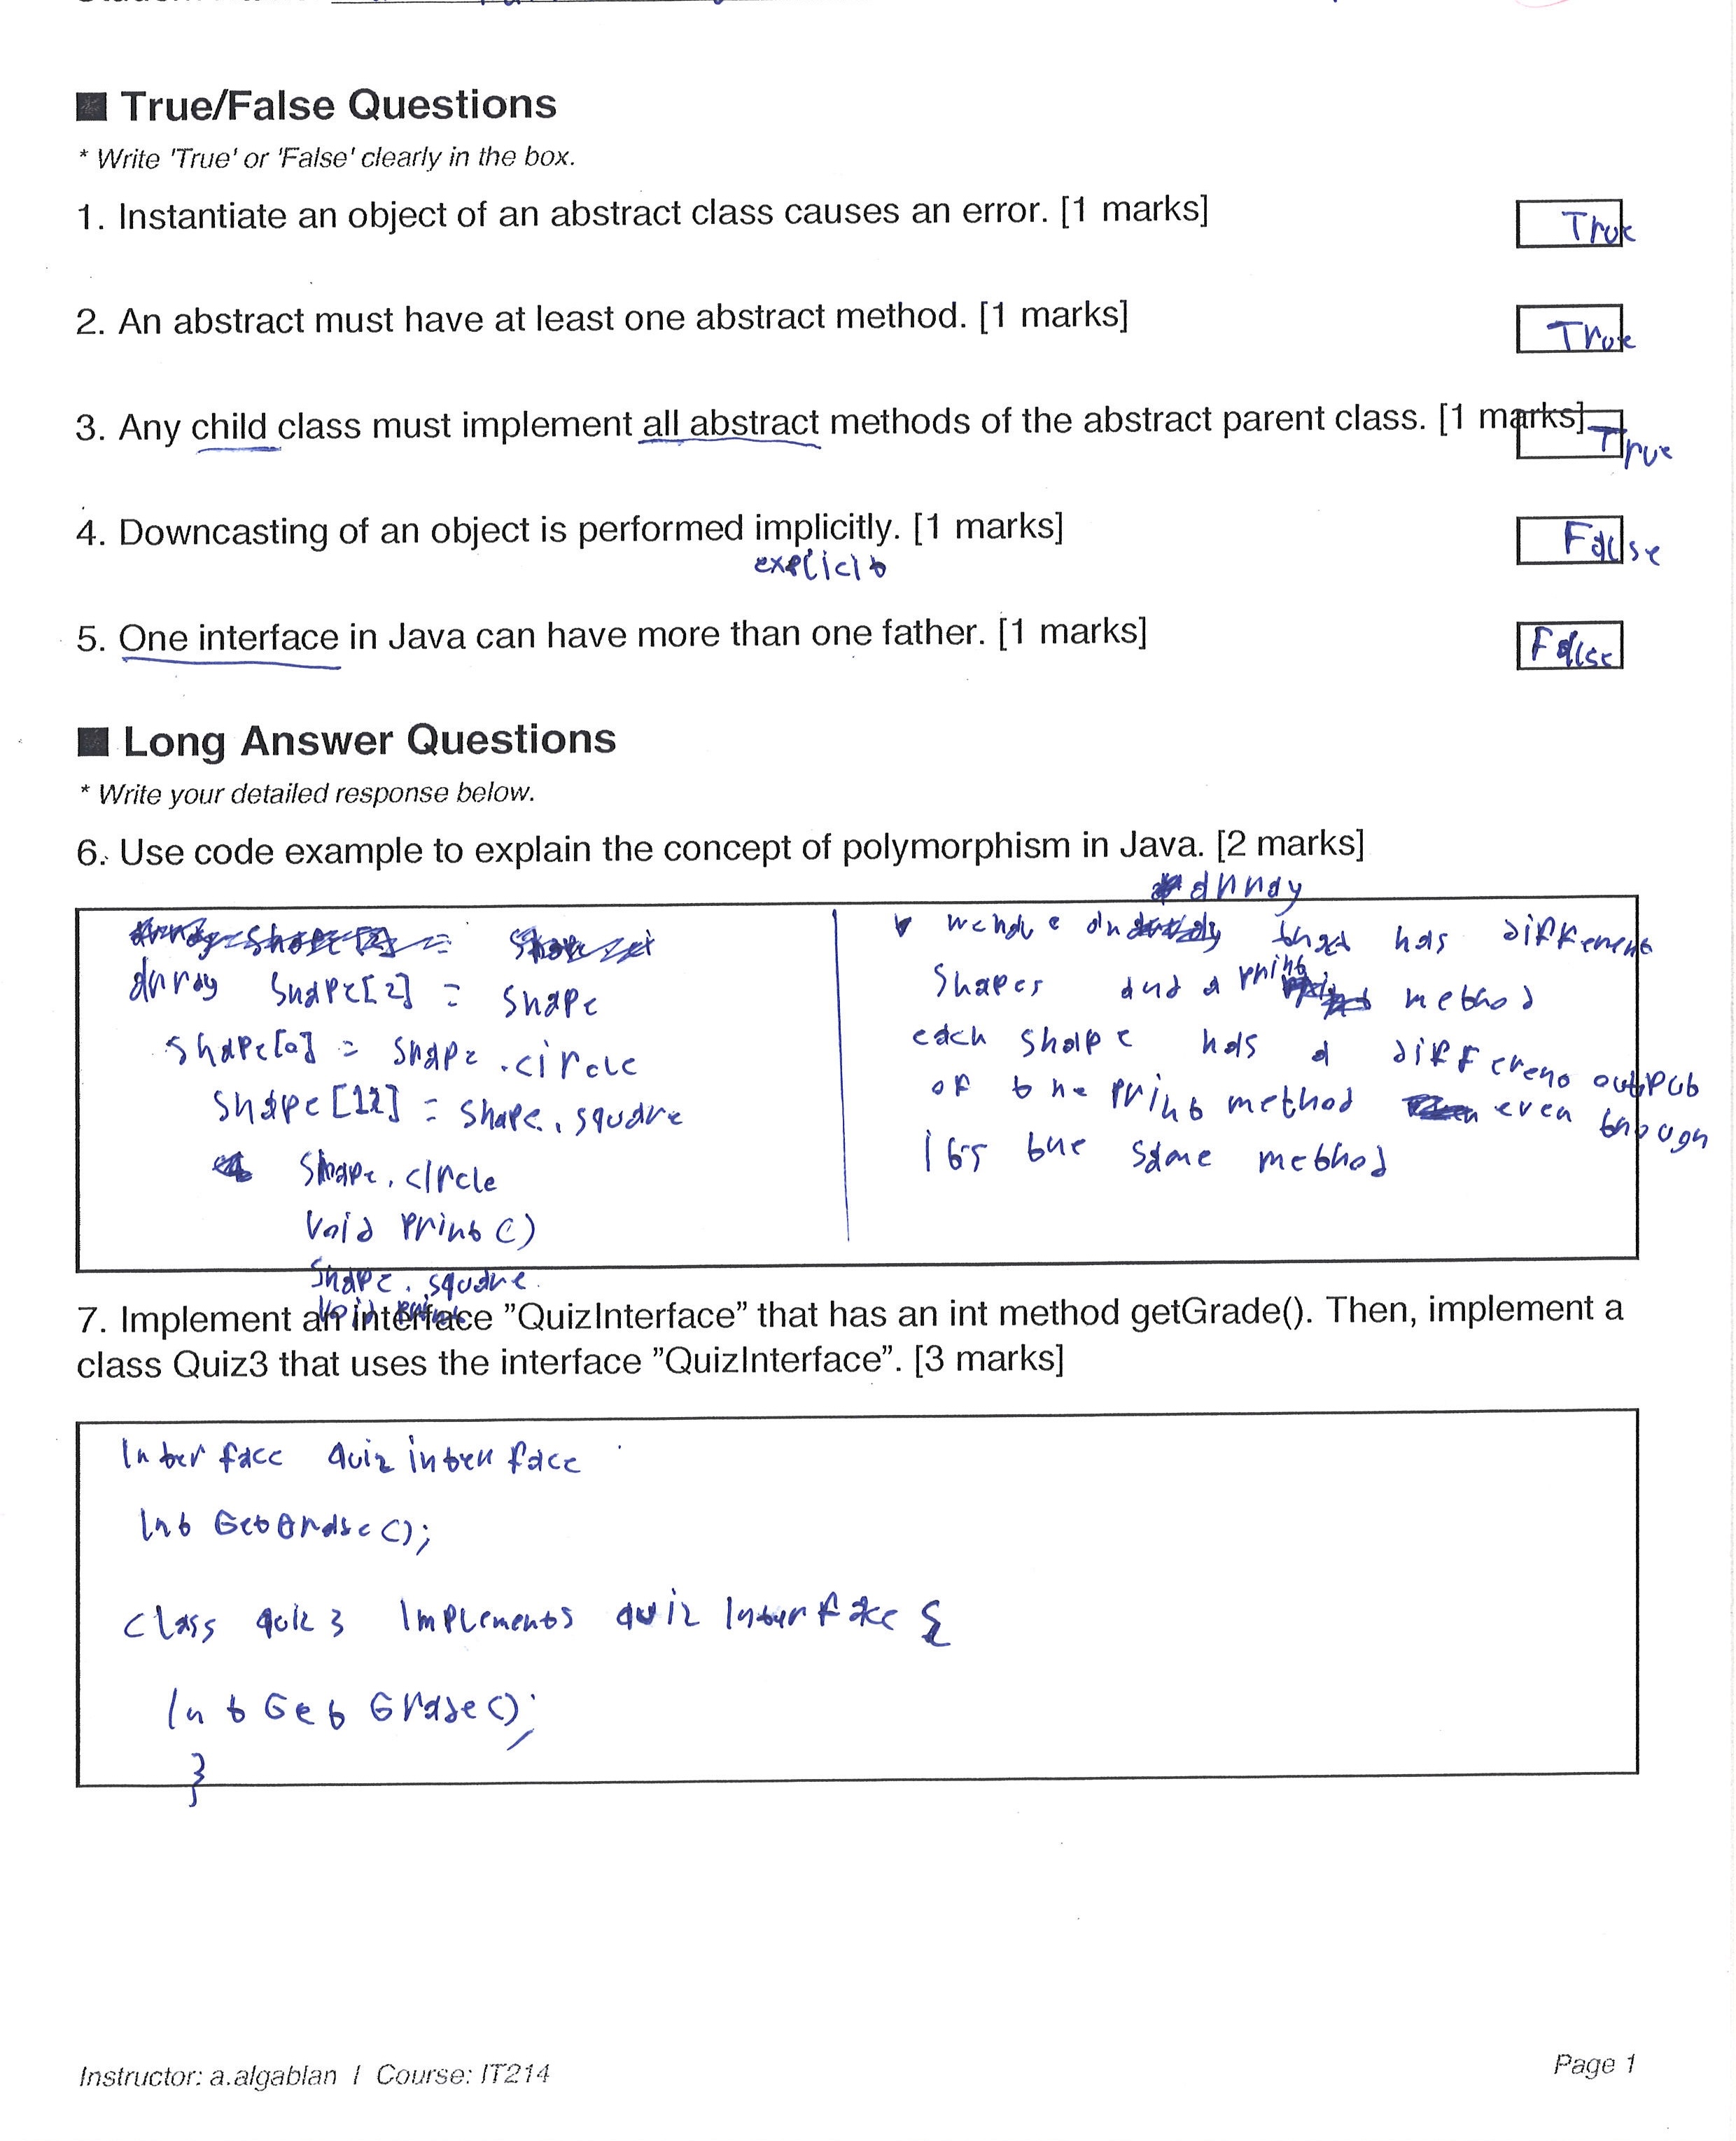 ■ True/False Questions
* Write 'True' or 'False' clearly in the box.
1. Instantiate an object of an abstract class causes an error. [1 marks] True
2. An abstract must have at least one abstract method. [1 marks] True
3. Any child class must implement all abstract methods of the abstract parent class. [1 marks] True
4. Downcasting of an object is performed implicitly. [1 marks] False
explicit
5. One interface in Java can have more than one father. [1 marks] False
■ Long Answer Questions
* Write your detailed response below.
6. Use code example to explain the concept of polymorphism in Java. [2 marks]
array shape[2] = shape
shape[0] = shape.circle
shape[1] = shape.square
shape.circle
void print()
shape.square
void print
array
we have an that has different
shapes and a print method
each shape has a different output
of the print method even though
its the same method
7. Implement an interface "QuizInterface" that has an int method getGrade(). Then, implement a
class Quiz3 that uses the interface "QuizInterface". [3 marks]
Interface quiz interface
Int GetGrade();
class quiz 3 Implements quiz Interface {
Int Get Grade();
}
Instructor: a.algablan / Course: IT214
Page 1